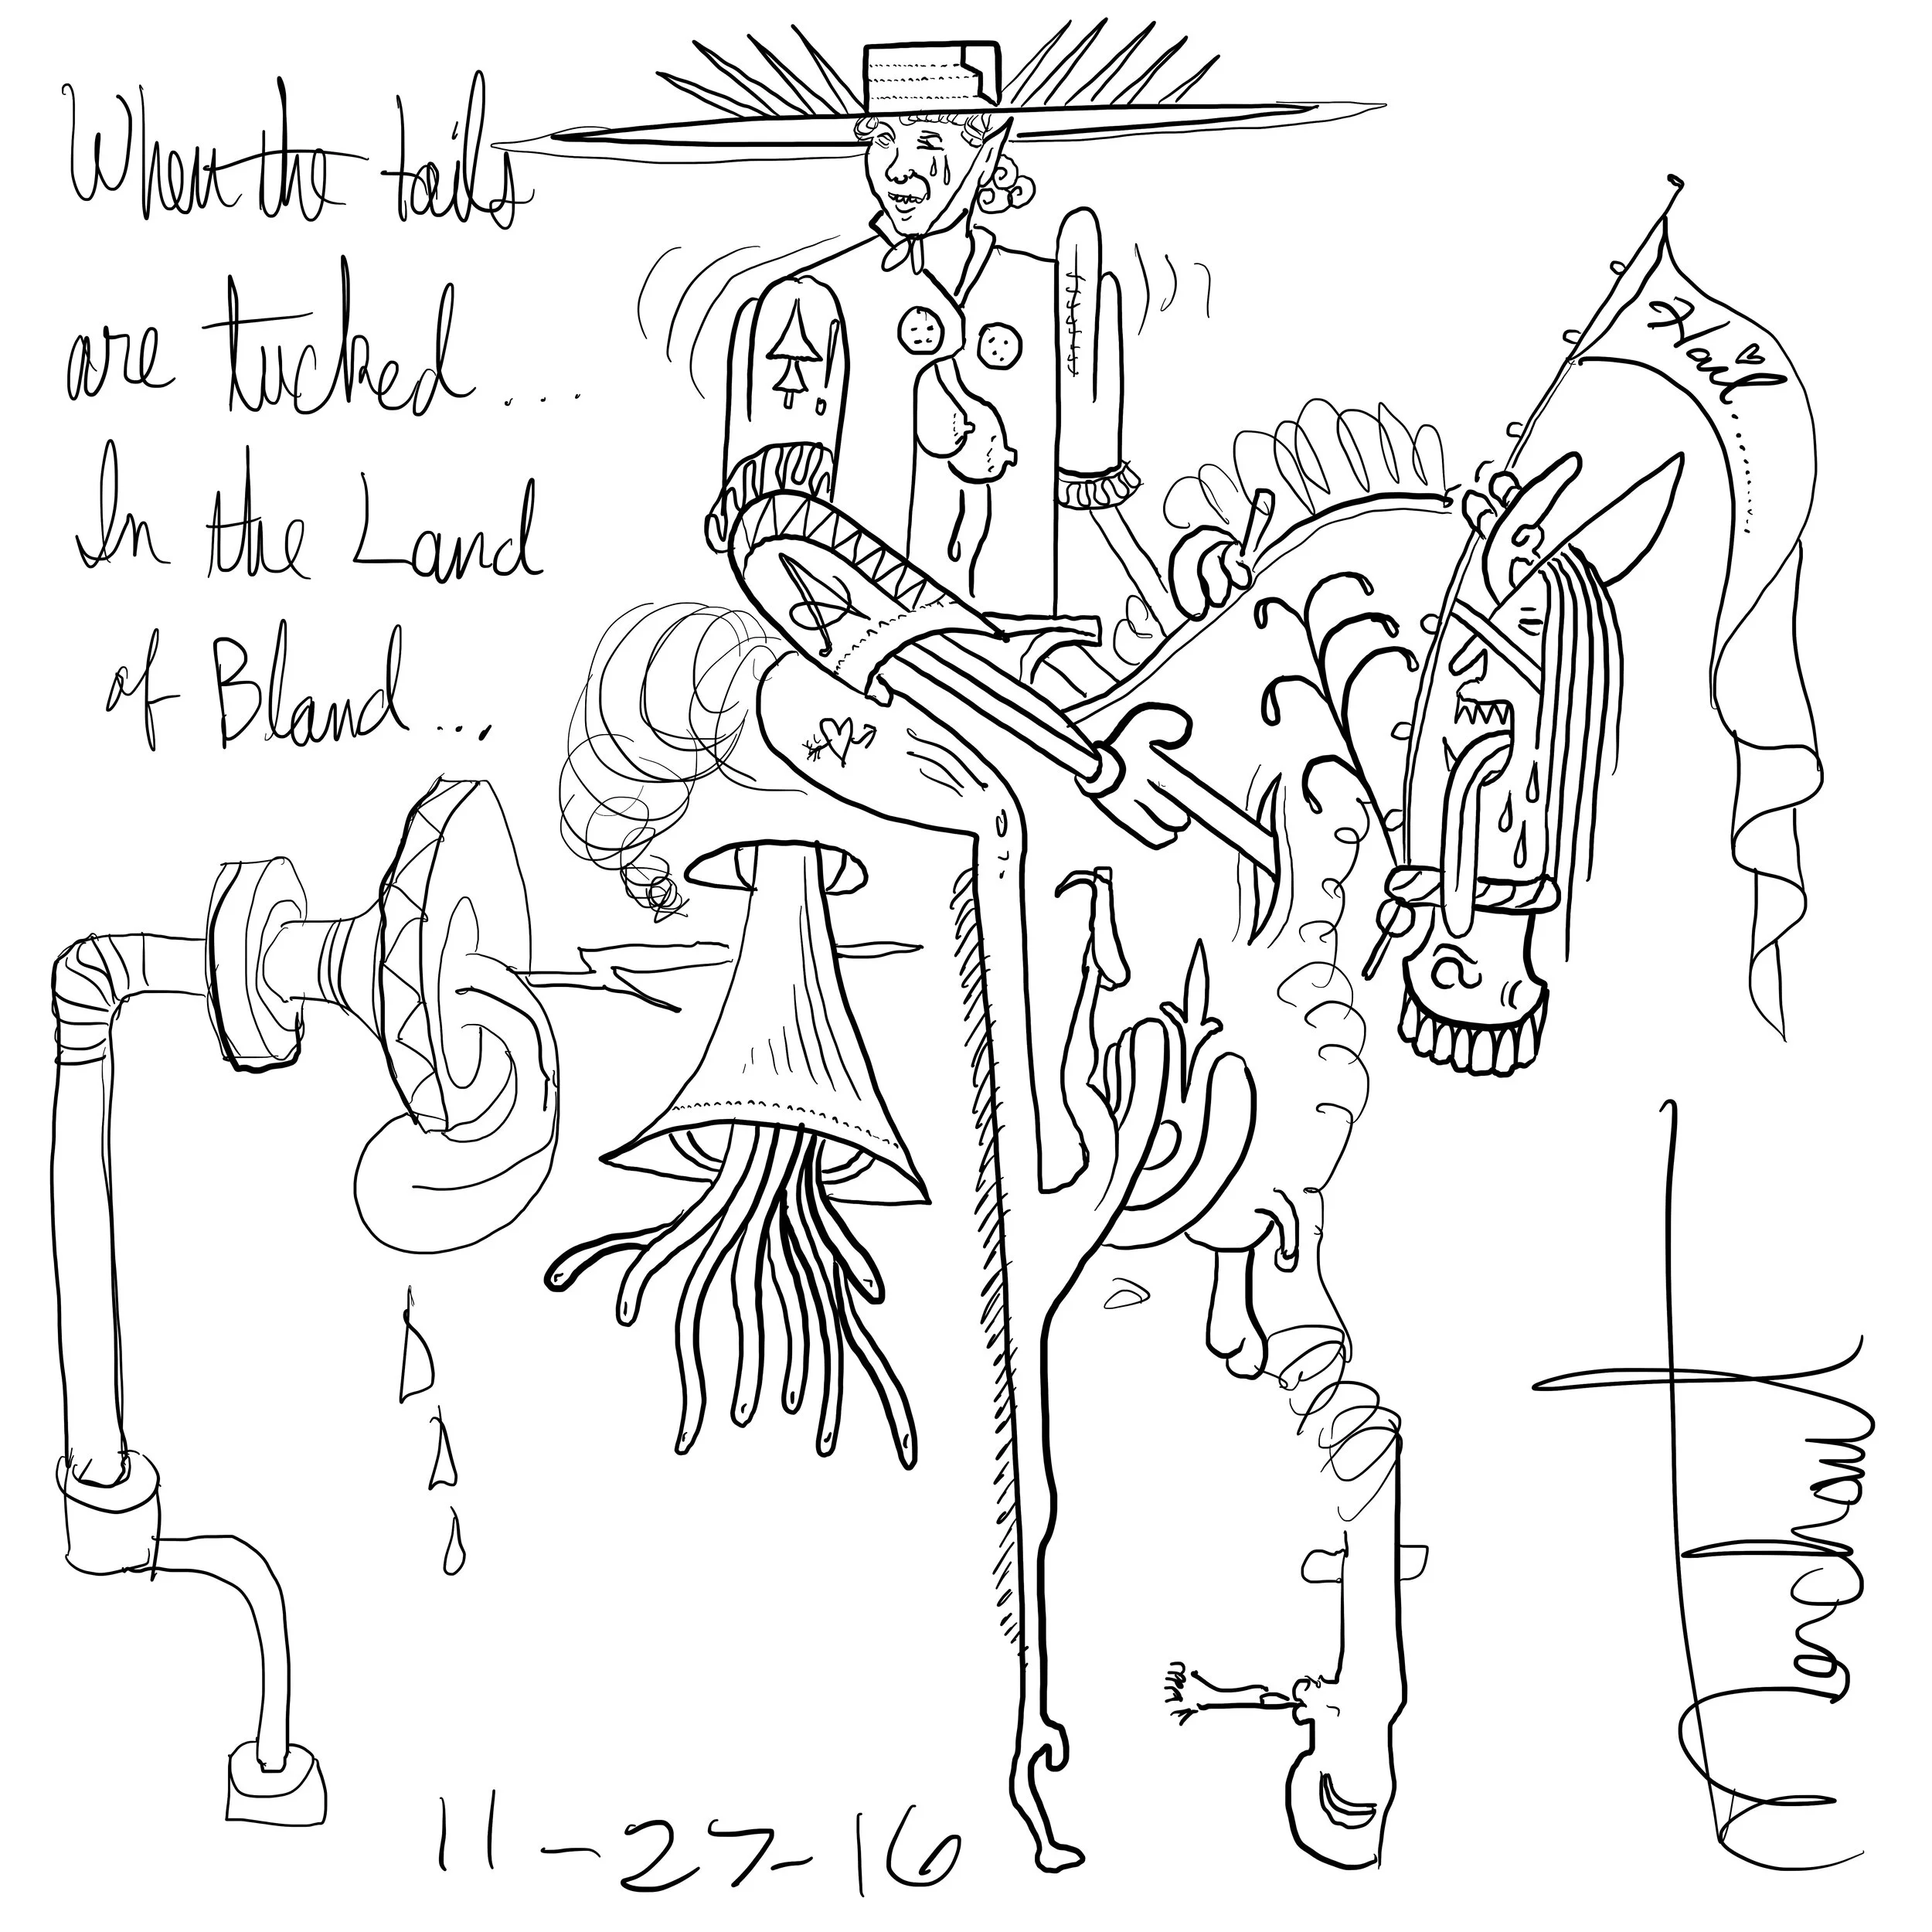 When the tails
are tucked...
In the Land
of Bland...
11-27-16